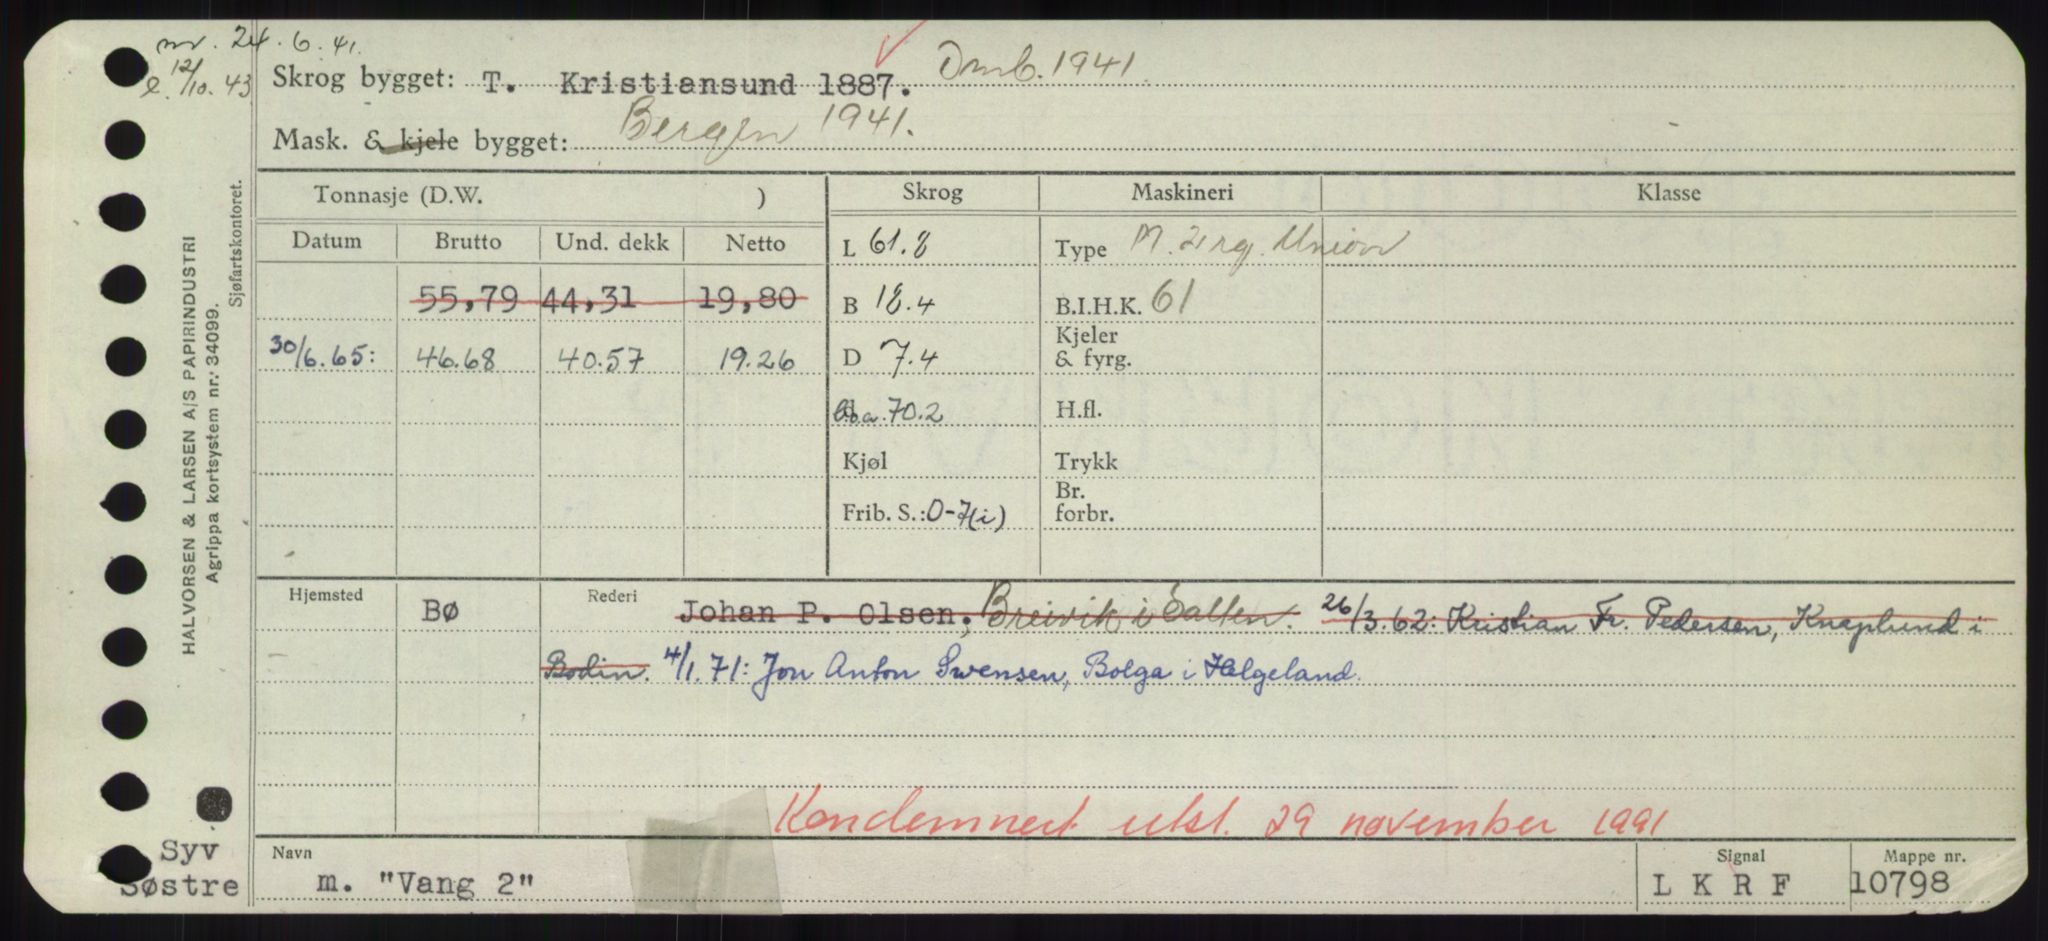 nr. 24.6.41.
e. 12/10.43
Skrog bygget: T. Kristiansund 1887. Omb. 1941.
Mask. & kjele bygget: Bergen 1941.
HALVORSEN & LARSEN A/S PAPIRINDUSTRI
Agrippa kortsystem nr: 34099.
Sjøfartskontoret.
Tonnasje (D.W. ) Skrog Maskineri Klasse
Datum Brutto Und. dekk Netto
L 61.8 Type M. 2 syl. Union
55,79 44,31 19,80 B 18.4 B.I.H.K. 61
30/6.65: 46.68 40.57 19.26 D 7.4 Kjeler
& fyrg.
l.o.a. 70.2 H.fl.
Kjøl Trykk
Frib. S.: 0-7(i) Br.
forbr.
Hjemsted Bø Rederi Johan P. Olsen, Breivik i Salten. 26/3.62: Kristian Fr. Pedersen, Knaplund i
Bodin. 4/1.71: Jon Anton Swensen, Bolga i Helgeland.
Kondemnert utst. 29 november 1991
Syv
Søstre
Navn Signal Mappe nr.
m. "Vang 2" L K R F 10798